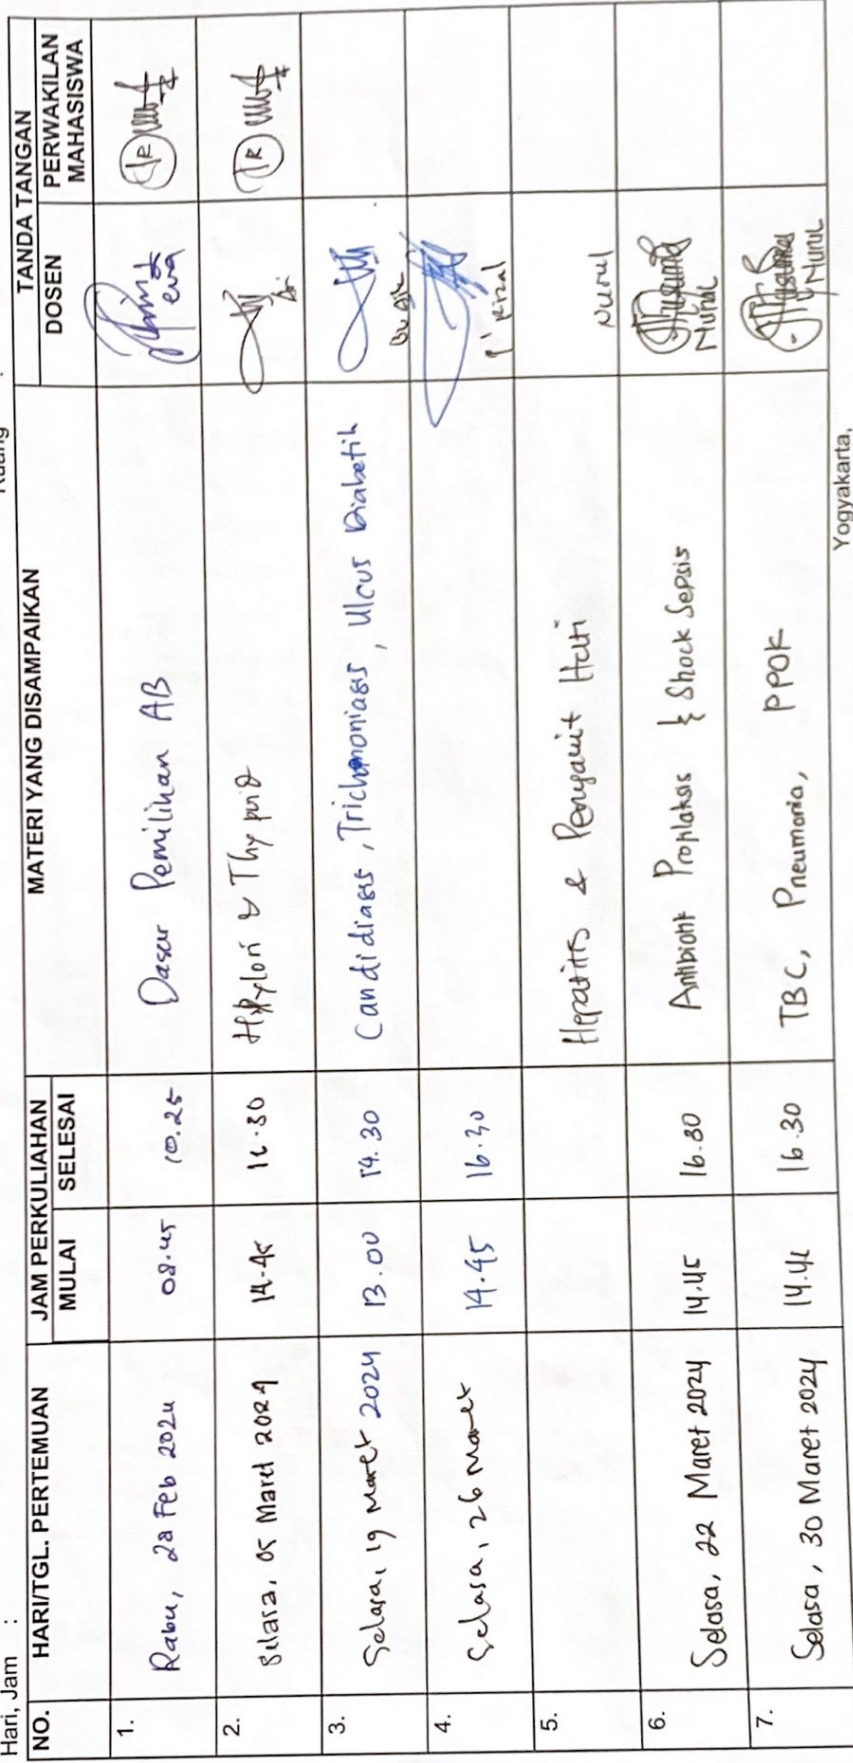 Hari, Jam :
NO. HARI/TGL. PERTEMUAN JAM PERKULIAHAN MATERI YANG DISAMPAIKAN TANDA TANGAN
MULAI SELESAI DOSEN PERWAKILAN MAHASISWA
1. Rabu, 28 Feb 2024 08.45 10.25 Dasar Pemilihan AB eva
2. Selasa, 05 Maret 2024 14.45 16.30 H.Pylori & Thypoid
3. Selasa, 19 Maret 2024 13.00 14.30 Candidiasis, Trichomoniasis, Ulcus Diabetik
4. Selasa, 26 Maret 14.45 16.30 p' Rizal
5. Hepatitis & Penyakit Hati Nurul
6. Selasa, 22 Maret 2024 14.45 16.30 Antibiotik Proplaksis & Shock Sepsis Nurul
7. Selasa, 30 Maret 2024 16.30 TBC, Pneumonia, PPOK Nurul
Yogyakarta,